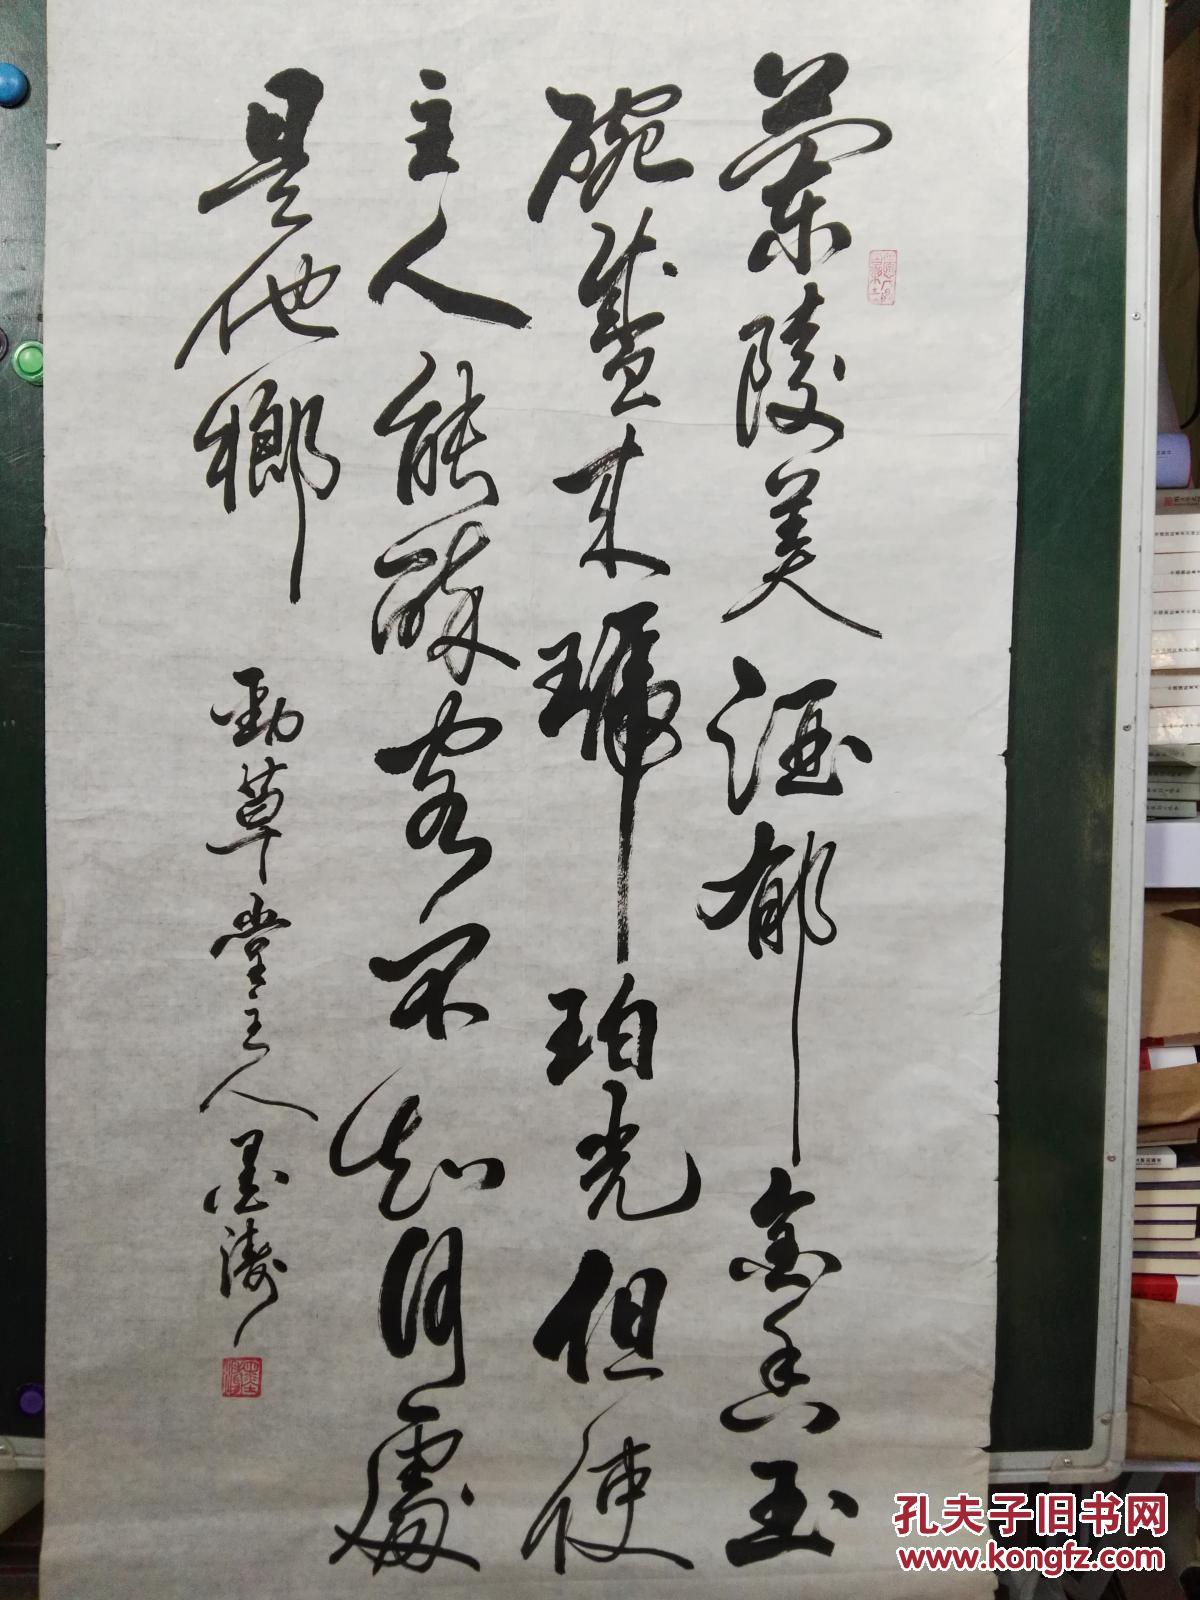 蘭陵美酒郁金香玉
碗盛来琥珀光但使
主人能醉客不知何處
是他鄉
勁草堂主人墨濤
孔夫子旧书网
www.kongfz.com